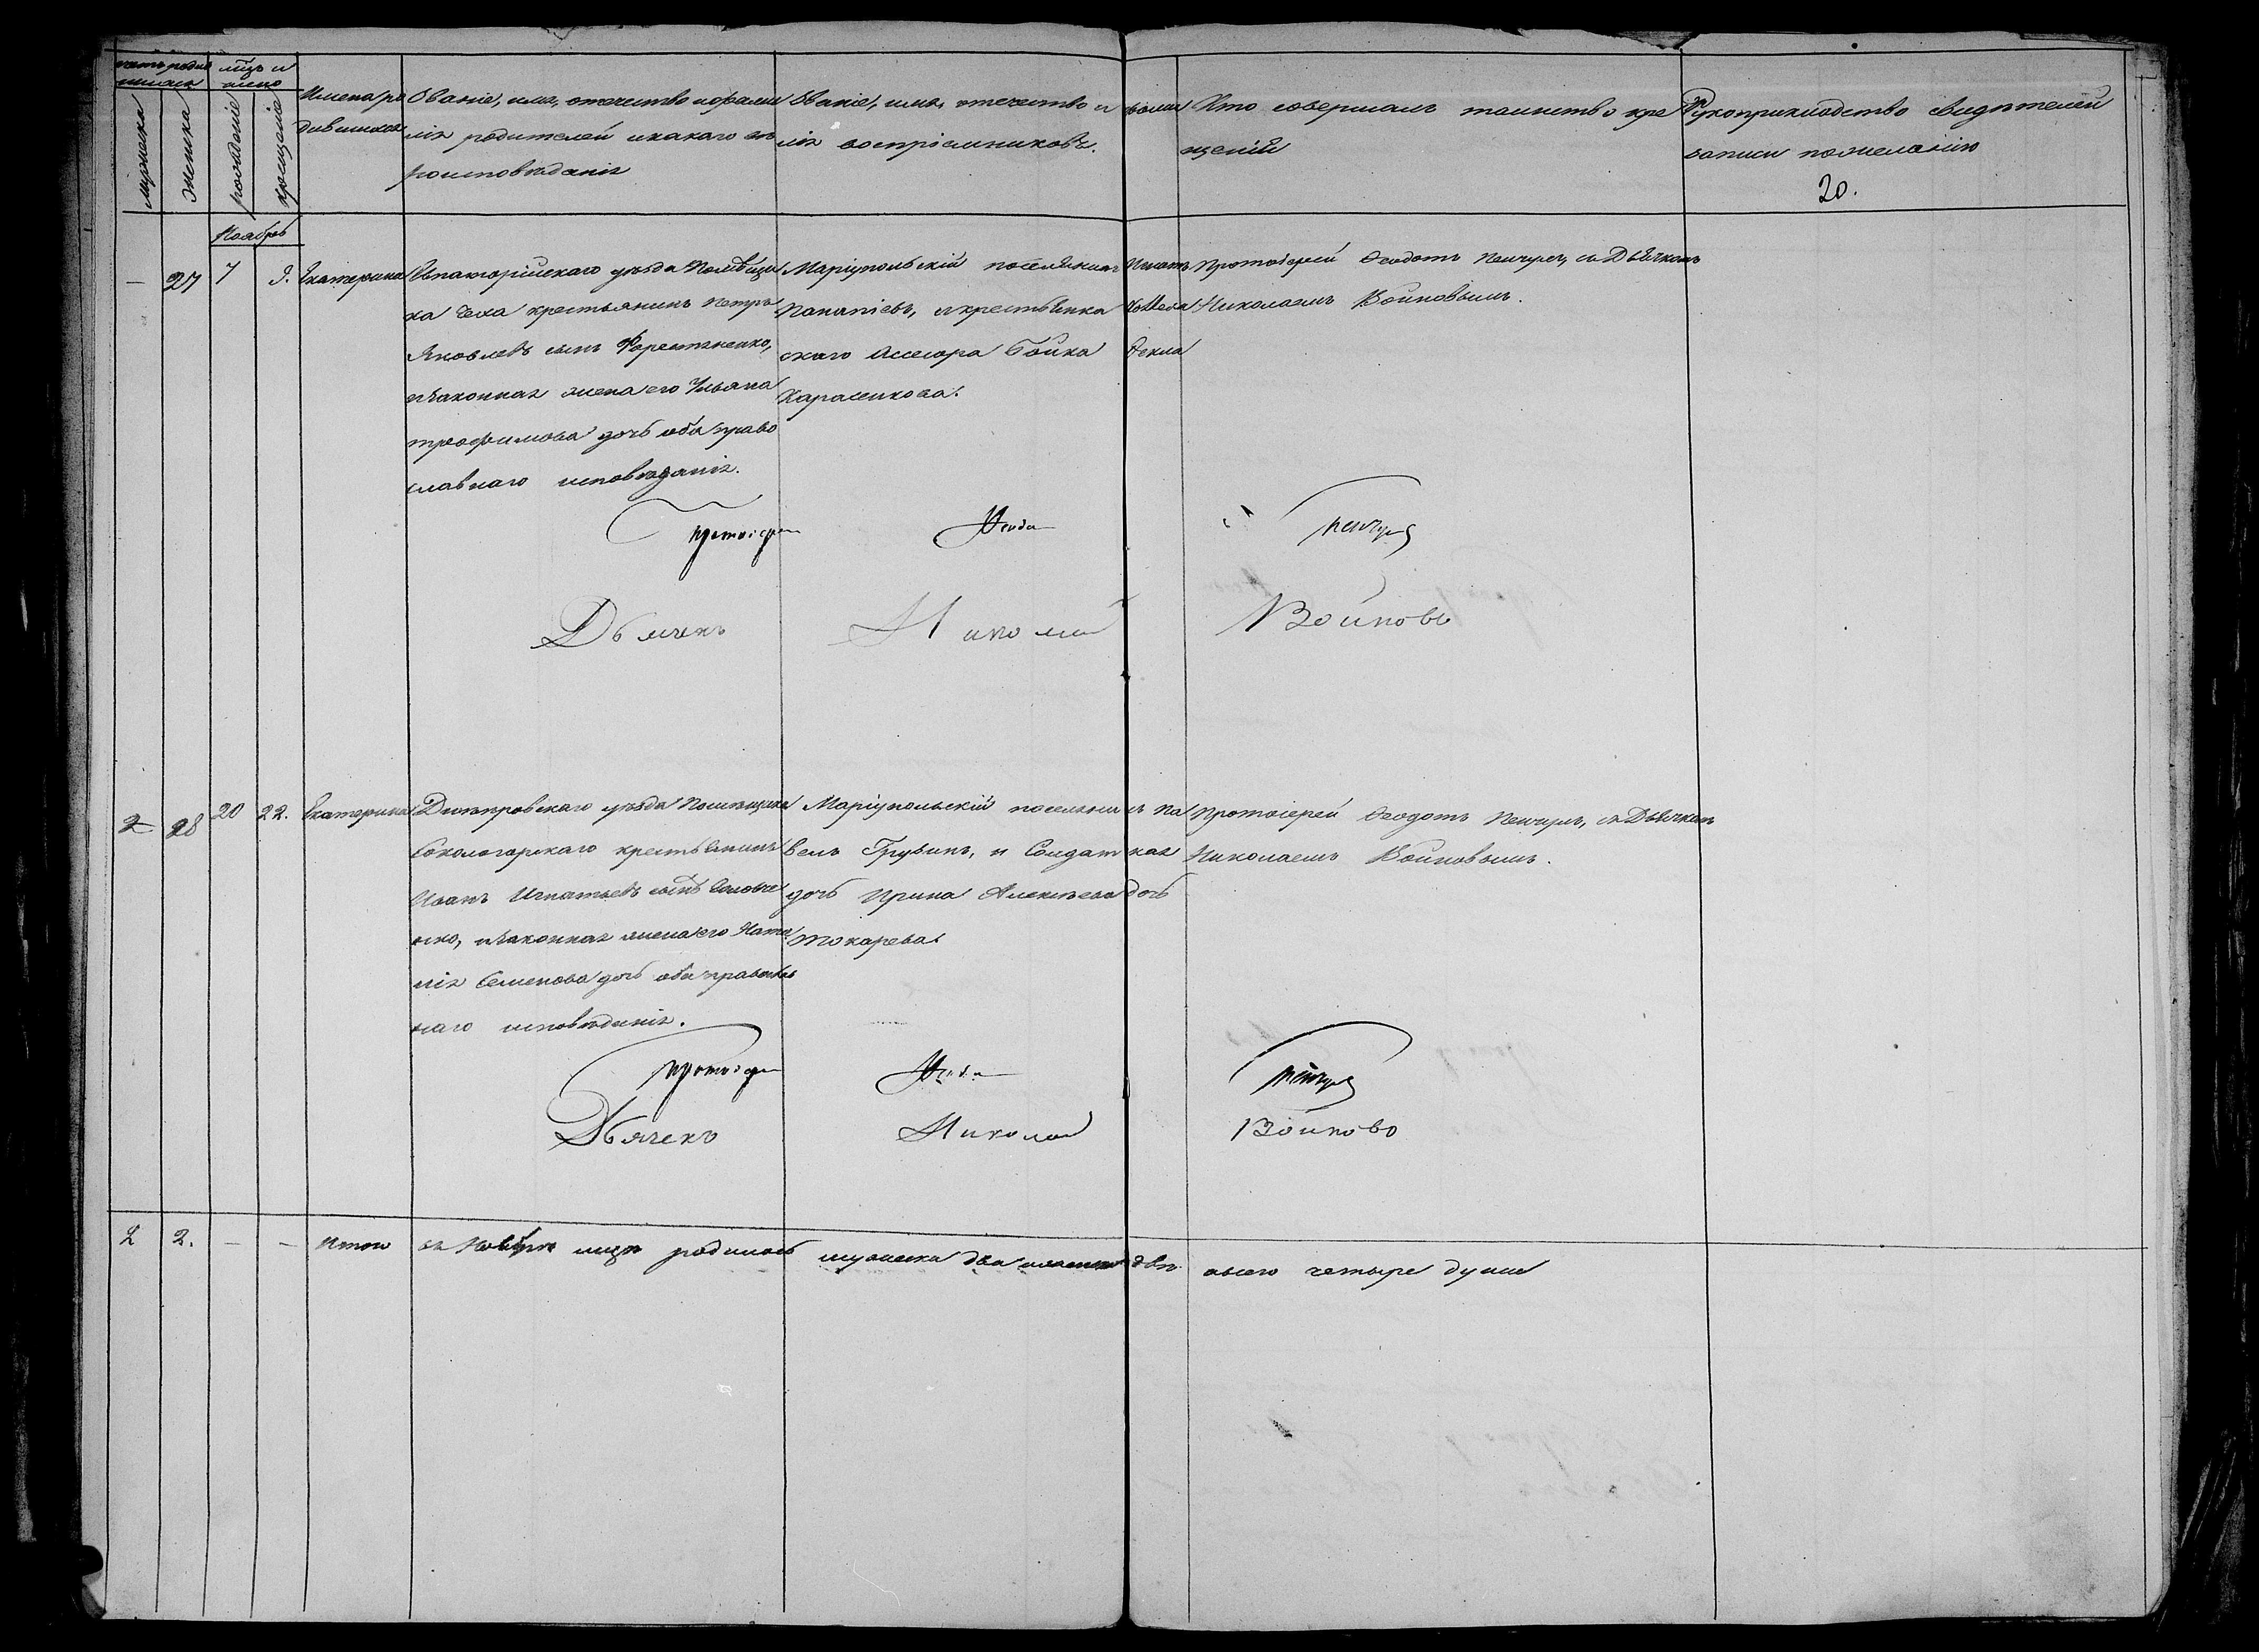 счетъ родив мѣць и
шихся число
мужеска
женска
рожденіе
крещеніе
Имена ро
дившихся
Званіе, имя, отечество и фами
лія родителей и какаго вѣ
роисповѣданія
Званіе, имя, отечество и фами
лія воспріемниковъ.
Кто совершалъ таинство кре
щенія
Рукоприкладство свидѣтелей
записи пожеланію
20.
Ноябрь
— 27 7 9. Екатерина
Евпаторійскаго уѣзда Помѣщи
ка крестьянинъ Петръ
Яковлевъ сынъ
и законная жена его Ульяна
трофимова дочь оба право
славнаго исповѣданія.
Маріупольскій поселянинъ Игнатъ
Папаніевъ, и крестьянка Коллеж
скаго Ассесора Бойка Ѳекла
Харасенкова.
Протоіерей Ѳеодотъ съ Дьячкомъ
Николаемъ Войновымъ.
Протоіерей Ѳеодо
Дьячекъ Николай Войновъ
28 20 22. Екатерина
Днѣпровскаго уѣзда Помѣщика
Сокологорскаго крестьянинъ
Иванъ Игнатьевъ сынъ
нко, и законная жена его Ната
лія Семенова дочь оба православ
наго исповѣданія.
Маріупольскій поселянинъ Па
велъ Грузинъ, и Солдатская
дочь Ирина Алексѣева дочь
Токарева.
Протоіерей Ѳеодотъ съ Дьячкомъ
Николаемъ Войновымъ.
Протоіерей Ѳеодо
Дьячекъ Николай Войновъ
2 2. — — Итого въ Ноябрѣ мцѣ родилось мужеска два и женска двѣ всего четыре души